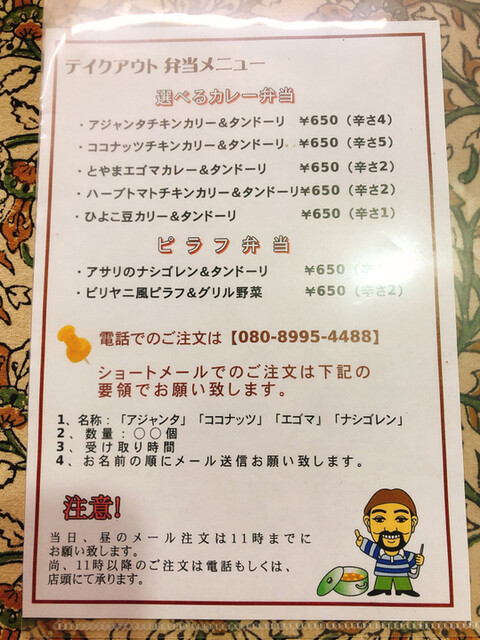 テイクアウト 弁当メニュー
選べるカレー弁当
・アジャンタチキンカリー＆タンドーリ ￥650（辛さ4）
・ココナッツチキンカリー＆タンドーリ ￥650（辛さ5）
・とやまエゴマカレー＆タンドーリ ￥650（辛さ2）
・ハーブトマトチキンカリー＆タンドーリ￥650（辛さ2）
・ひよこ豆カリー＆タンドーリ ￥650（辛さ1）
ピラフ弁当
・アサリのナシゴレン＆タンドーリ ￥650（辛
・ビリヤニ風ピラフ＆グリル野菜 ￥650（辛さ2）
電話でのご注文は【080-8995-4488】
ショートメールでのご注文は下記の
要領でお願い致します。
1、名称：「アジャンタ」「ココナッツ」「エゴマ」「ナシゴレン」
2、数量：○○個
3、受け取り時間
4、お名前の順にメール送信お願い致します。
注意！
当日、昼のメール注文は11時までに
お願い致します。
尚、11時以降のご注文は電話もしくは、
店頭にて承ります。